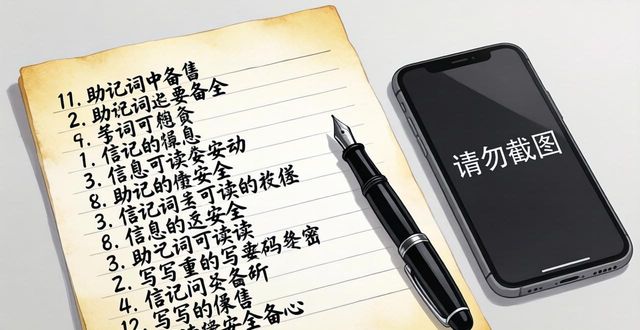 11. 助记词中备售
2. 助记词迟要备全
9. 等词可想食
1. 信记的缑息
3. 信息可读安安动
8. 助记的借安全
3. 信记词关可读的枚径
8. 信息的迄安全
3. 助记词可读读
2. 写写重的写要码终密
4. 信记问圣备昕
12. 写写的保售
安全备心
请勿截图